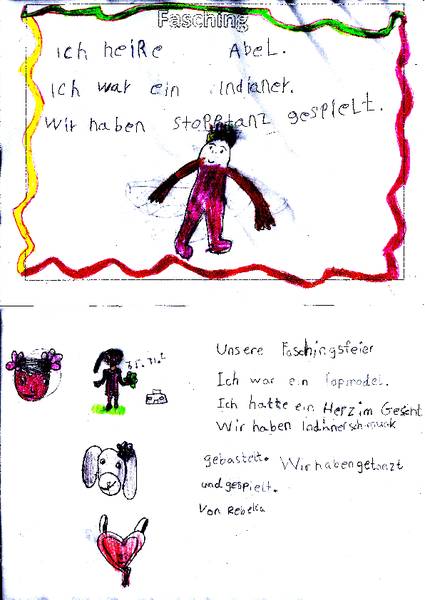 Fasching
Ich heiße Abel.
Ich war ein Indianer.
Wir haben Stopptanz gespielt.
Unsere Faschingsfeier
Ich war ein Topmodel.
Ich hatte ein Herz im Gesicht
Wir haben Indianerschmuck
gebastelt. Wir haben getanzt
und gespielt.
Von Rebeka